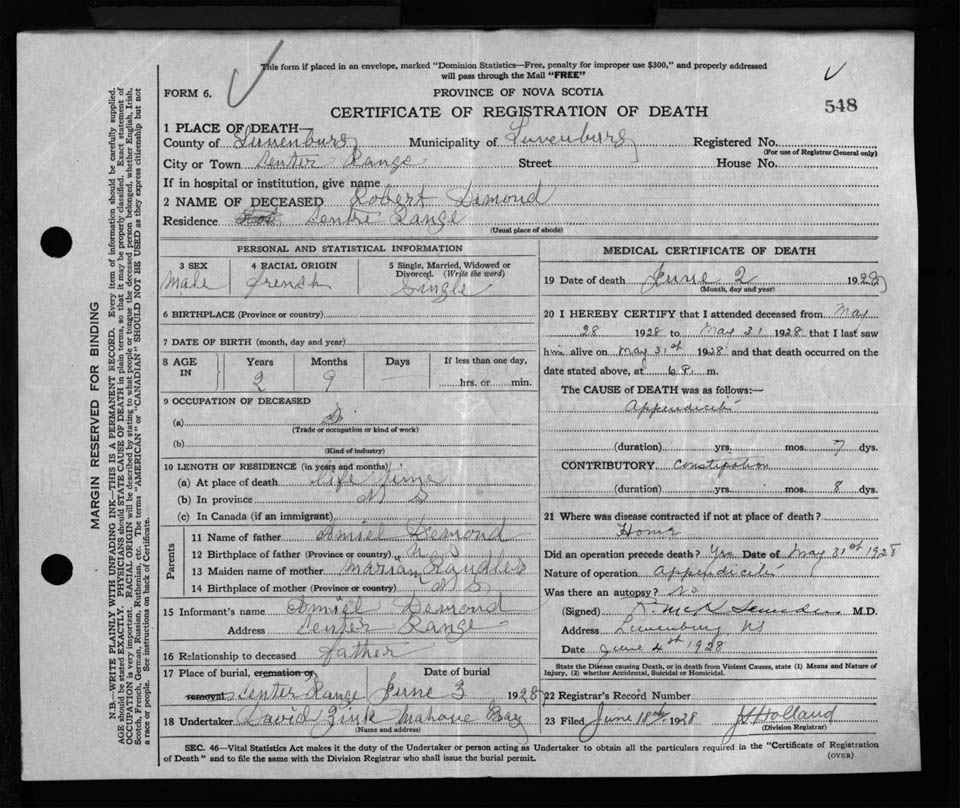 This form if placed in an envelope, marked "Dominion Statistics—Free, penalty for improper use $300," and properly addressed
will pass through the Mail "FREE"
FORM 6.
PROVINCE OF NOVA SCOTIA
548
CERTIFICATE OF REGISTRATION OF DEATH
1 PLACE OF DEATH—
County of Lunenburg Municipality of Lunenburg Registered No.
(For use of Registrar General only)
City or Town Center Range Street House No.
If in hospital or institution, give name
2 NAME OF DECEASED Robert Demond
Residence Centre Range
(Usual place of abode)
PERSONAL AND STATISTICAL INFORMATION
3 SEX 4 RACIAL ORIGIN 5 Single, Married, Widowed or
Divorced. (Write the word)
Male french Single
6 BIRTHPLACE (Province or country)
7 DATE OF BIRTH (month, day and year)
8 AGE IN Years Months Days If less than one day,
2 9 — hrs. or min.
9 OCCUPATION OF DECEASED
(a)
(Trade or occupation or kind of work)
(b)
(Kind of industry)
10 LENGTH OF RESIDENCE (in years and months)
(a) At place of death life time
(b) In province N S
(c) In Canada (if an immigrant)
Parents
11 Name of father Amiel Demond
12 Birthplace of father (Province or country) N S
13 Maiden name of mother Marian
14 Birthplace of mother (Province or country) N S
15 Informant's name Amiel Demond
Address Center Range
16 Relationship to deceased father
17 Place of burial, cremation or Date of burial
removal Center Range June 3 1928
18 Undertaker David Zink Mahone Bay
(Name and address)
MEDICAL CERTIFICATE OF DEATH
19 Date of death June 2 1928
(Month, day and year)
20 I HEREBY CERTIFY that I attended deceased from May
28 1928 to May 31 1928 that I last saw
him alive on May 31st 1928 and that death occurred on the
date stated above, at 6 P. m.
The CAUSE of DEATH was as follows:—
Appendicitis
(duration) yrs. mos. 7 dys.
CONTRIBUTORY Constipation
(duration) yrs. mos. 8 dys.
21 Where was disease contracted if not at place of death?
Home
Did an operation precede death? Yes Date of May 31st 1928
Nature of operation Appendicitis
Was there an autopsy? No
(Signed) M.D.
Address Lunenburg, NS
Date June 4th 1928
State the Disease causing Death, or in death from Violent Causes, state (1) Means and Nature of
Injury, (2) whether Accidental, Suicidal or Homicidal.
22 Registrar's Record Number
23 Filed June 18th 1928 Holland
(Division Registrar)
SEC. 46—Vital Statistics Act makes it the duty of the Undertaker or person acting as Undertaker to obtain all the particulars required in the "Certificate of Registration
of Death" and to file the same with the Division Registrar who shall issue the burial permit.
(OVER)
MARGIN RESERVED FOR BINDING
N.B.—WRITE PLAINLY WITH UNFADING INK—THIS IS A PERMANENT RECORD. Every item of information should be carefully supplied.
AGE should be stated EXACTLY. PHYSICIANS should STATE CAUSE OF DEATH in plain terms, so that it may be properly classified. Exact statement of
OCCUPATION is very important. RACIAL ORIGIN will be described by stating to what people or tongue the deceased person belonged, whether English, Irish,
Scotch, French, German, Russian, Ruthenian, etc. The terms "AMERICAN" or "CANADIAN" SHOULD NOT BE USED as they express citizenship but not
a race or people. See instructions on back of Certificate.